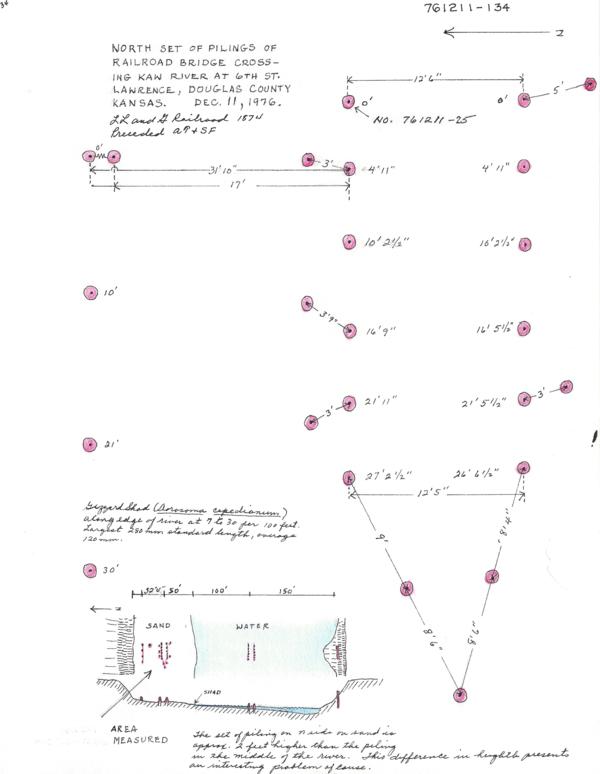 761211-134
N
NORTH SET OF PILINGS OF
RAILROAD BRIDGE CROSS-
ING KAW RIVER AT 6TH ST.
LAWRENCE, DOUGLAS COUNTY
KANSAS. DEC. 11, 1976.
LL and G Railroad 1874
Preceded AT+SF
12'6"
5'
0'
0'
NO. 761211-25
0'
3'
31'10"
4'11"
4'11"
17'
10'2½"
10'2½"
10'
3'9"
16'9"
16'5½"
3'
21'11"
21'5½"
3'
21'
27'2½"
26'6½"
12'5"
Gizzard Shad (Dorosoma cepedianum)
along edge of river at 7 to 30 per 100 feet.
Largest 280 mm standard length, average
120 mm.
9'
8'4"
30'
32'0" 50' 100' 150'
N
SAND WATER
8'6"
7'8"
SHAD
AREA
MEASURED
The set of piling on n side on sand is
approx. 2 feet higher than the piling
in the middle of the river. This difference in heighth presents
an interesting problem of cause.